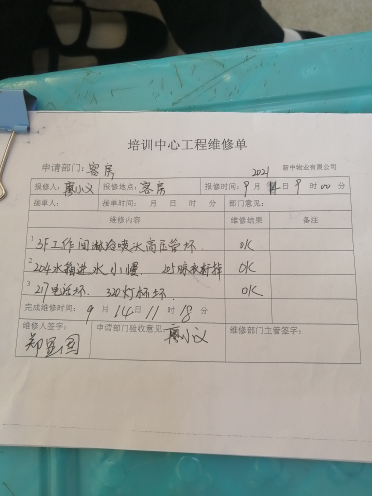 培训中心工程维修单
申请部门：客房 2021 新中物业有限公司
报修人：廖小义 报修地点：客房 报修时间：9月14日9时00分
接单人： 接单时间： 月 日 时 分 部门意见：
维修内容 维修结果 备注
1 3F工作间淋浴喷水高压管坏 OK
2 204水箱进水小慢 205 OK
3 217电话坏 320灯杯坏 OK
完成维修时间：9月14日11时18分
维修人签字： 申请部门验收意见：廖小义 维修部门主管签字：